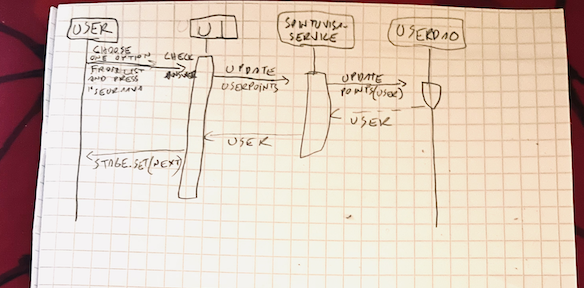 USER
UI
SANTUVISA-
SERVICE
USERDAO
CHOOSE
ONE OPTION
FROM LIST
AND PRESS
"SEURAAVA
CHECK
ANSWER
UPDATE
USERPOINTS
UPDATE
POINTS(USER)
USER
USER
STAGE.SET(NEXT)